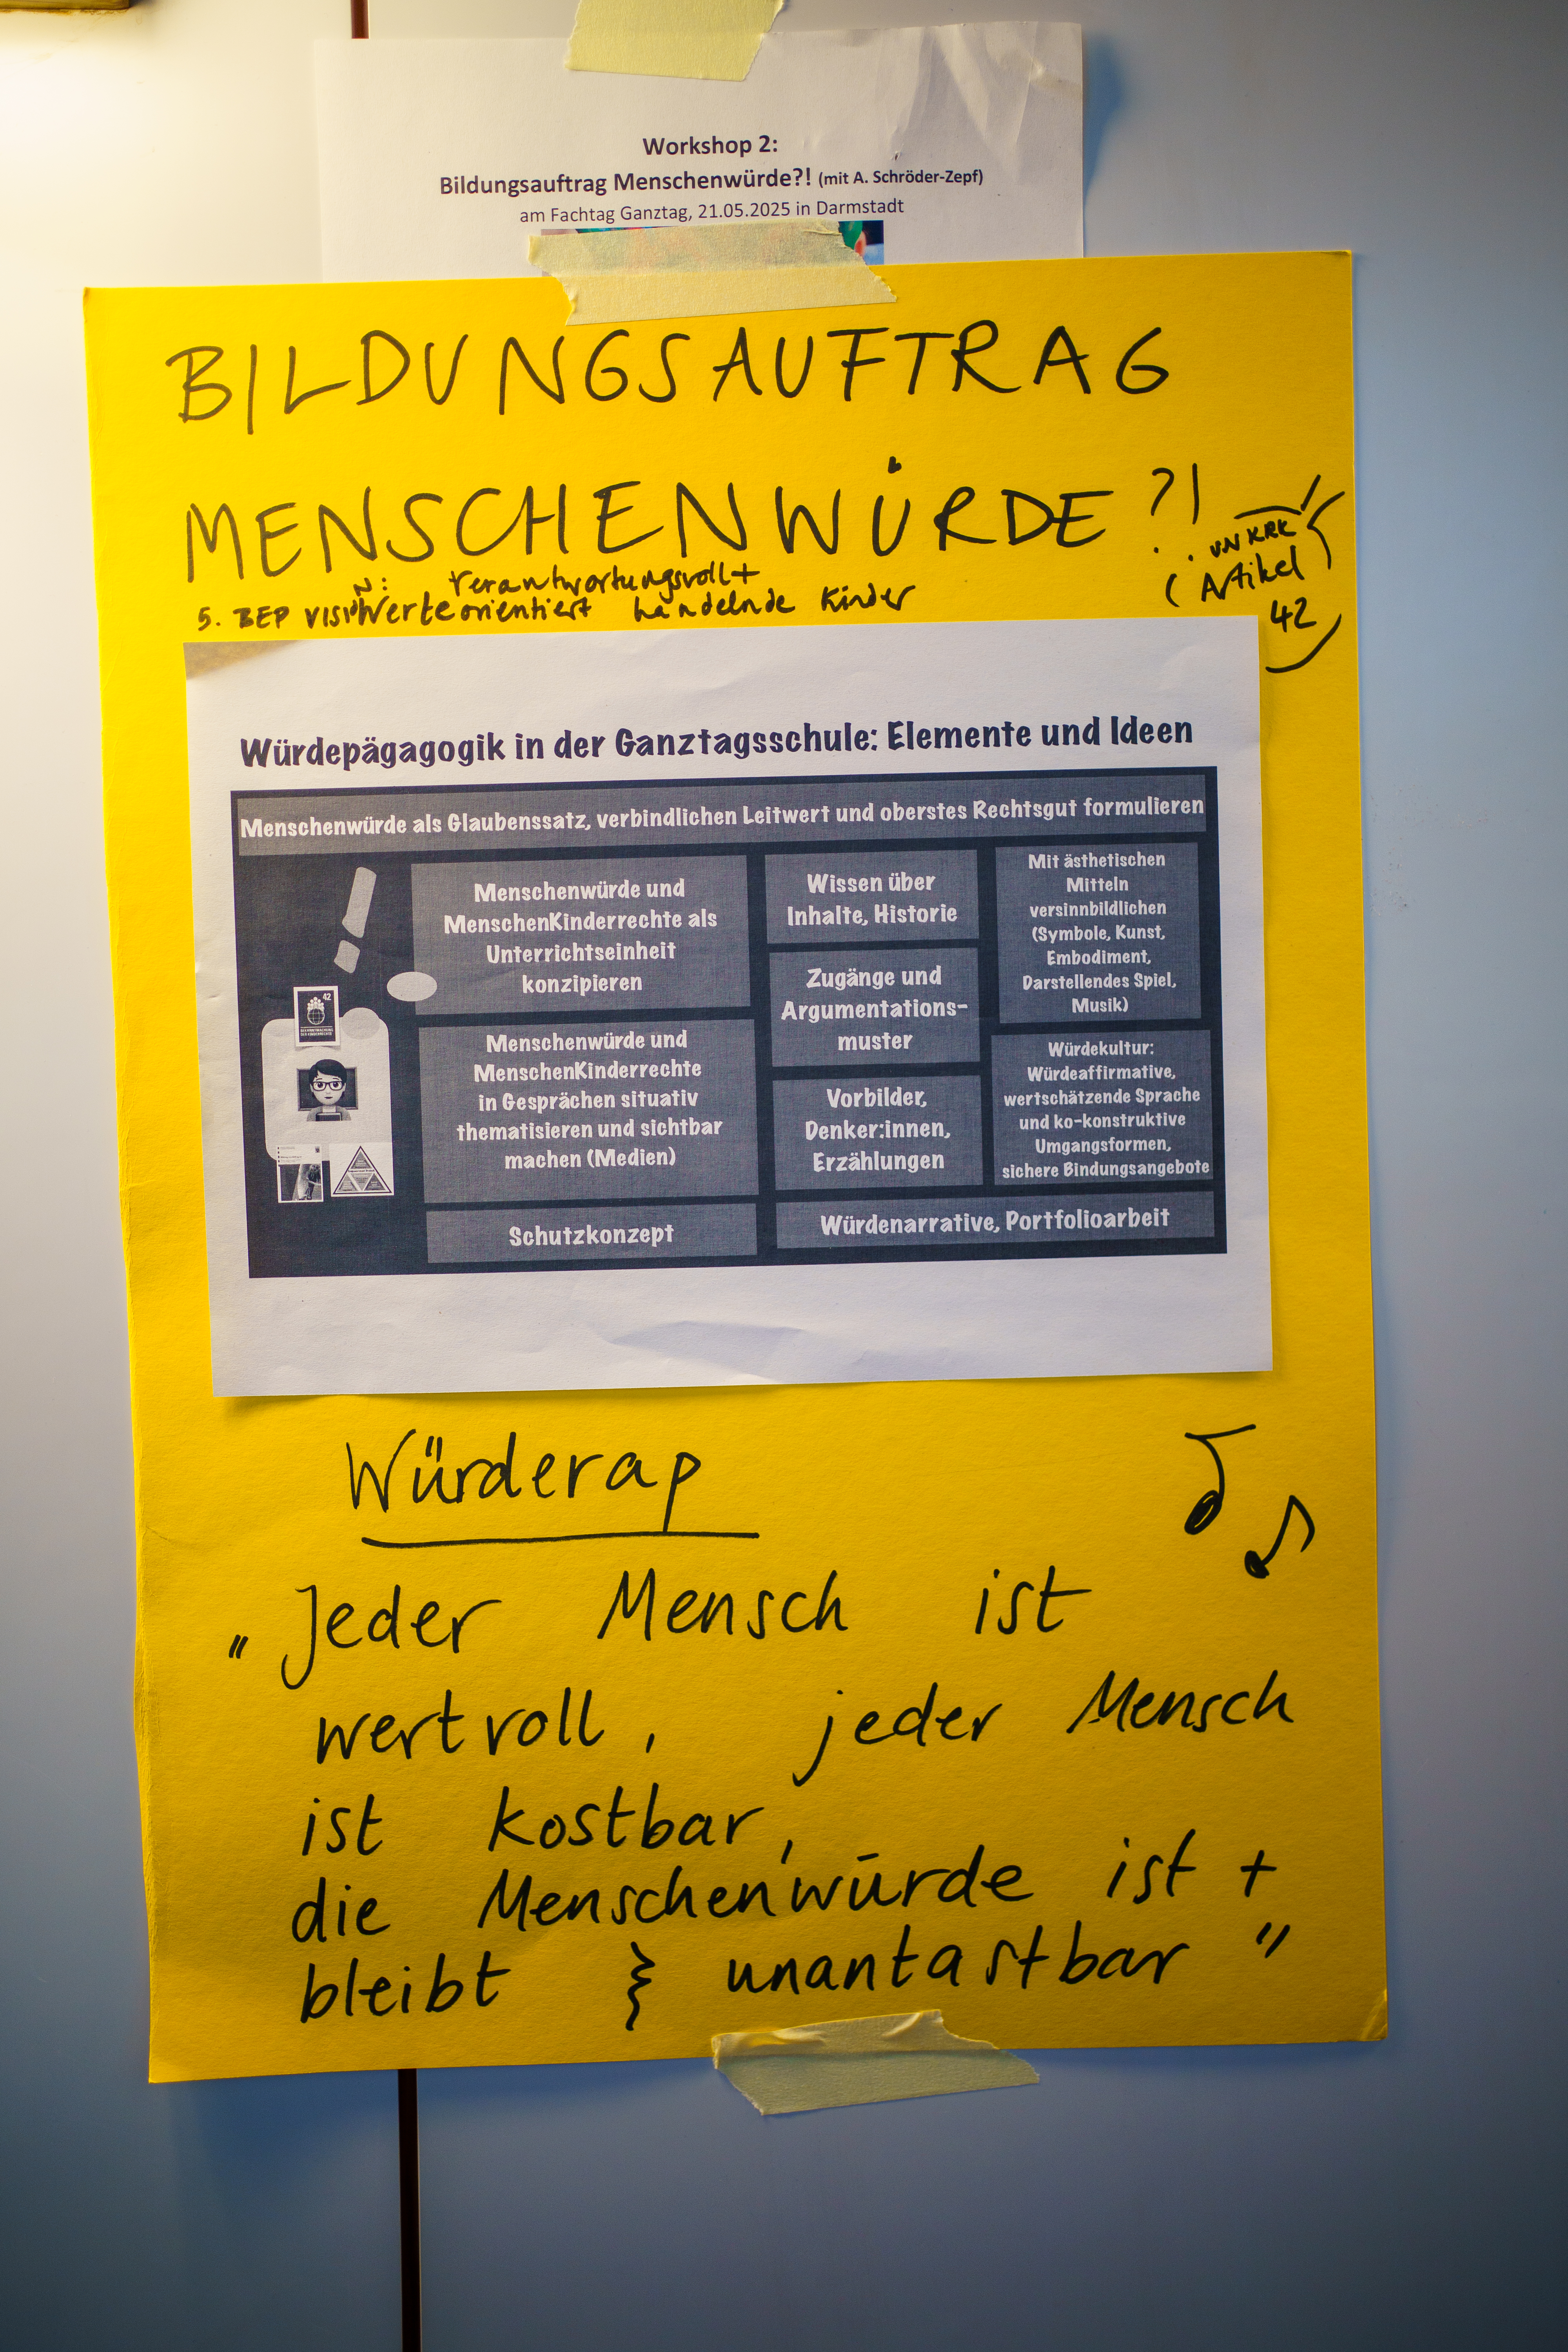 Workshop 2:
Bildungsauftrag Menschenwürde?! (mit A. Schröder-Zepf)
am Fachtag Ganztag, 21.05.2025 in Darmstadt
BILDUNGSAUFTRAG
MENSCHENWÜRDE?!
UN KRK
(Artikel
42
verantwortungsvoll+
5. BEP Werteorientiert handelnde Kinder
Würdepägagogik in der Ganztagsschule: Elemente und Ideen
Menschenwürde als Glaubenssatz, verbindlichen Leitwert und oberstes Rechtsgut formulieren
Menschenwürde und
MenschenKinderrechte als
Unterrichtseinheit
konzipieren
Menschenwürde und
MenschenKinderrechte
in Gesprächen situativ
thematisieren und sichtbar
machen (Medien)
Schutzkonzept
Wissen über
Inhalte, Historie
Zugänge und
Argumentations-
muster
Vorbilder,
Denker:innen,
Erzählungen
Mit ästhetischen
Mitteln
versinnbildlichen
(Symbole, Kunst,
Embodiment,
Darstellendes Spiel,
Musik)
Würdekultur:
Würdeaffirmative,
wertschätzende Sprache
und ko-konstruktive
Umgangsformen,
sichere Bindungsangebote
Würdenarrative, Portfolioarbeit
42
Würderap
"Jeder Mensch ist
wertvoll, jeder Mensch
ist kostbar,
die Menschenwürde ist +
bleibt unantastbar"